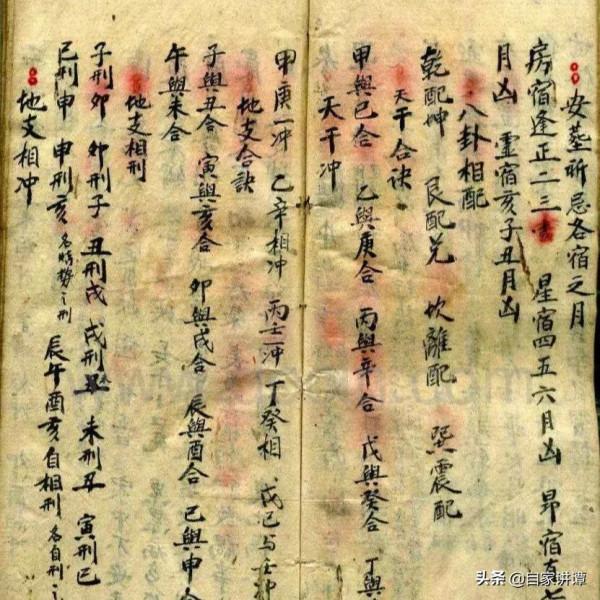 安墓所忌各宿之月
房宿逢正二三 星宿四五六月凶 昴宿
月凶 宿亥子丑月凶
八卦相配
乾配坤 艮配兑 坎離配 巽震配
天干合诀
甲與已合 乙與庚合 丙與辛合 戊與癸合 丁與
天干冲
甲庚一冲 乙辛相冲 丙壬一冲 丁癸相 戊已与壬冲
地支合訣
子與丑合 寅與亥合 卯與戌合 辰與酉合 巳與申合
午與未合
地支相刑
子刑卯 卯刑子 丑刑戌 戌刑 未刑丑 寅刑巳
巳刑申 申刑亥 名時勢之刑 辰午酉亥自相刑 名自刑之
地支相冲
头条 @自家讲谭